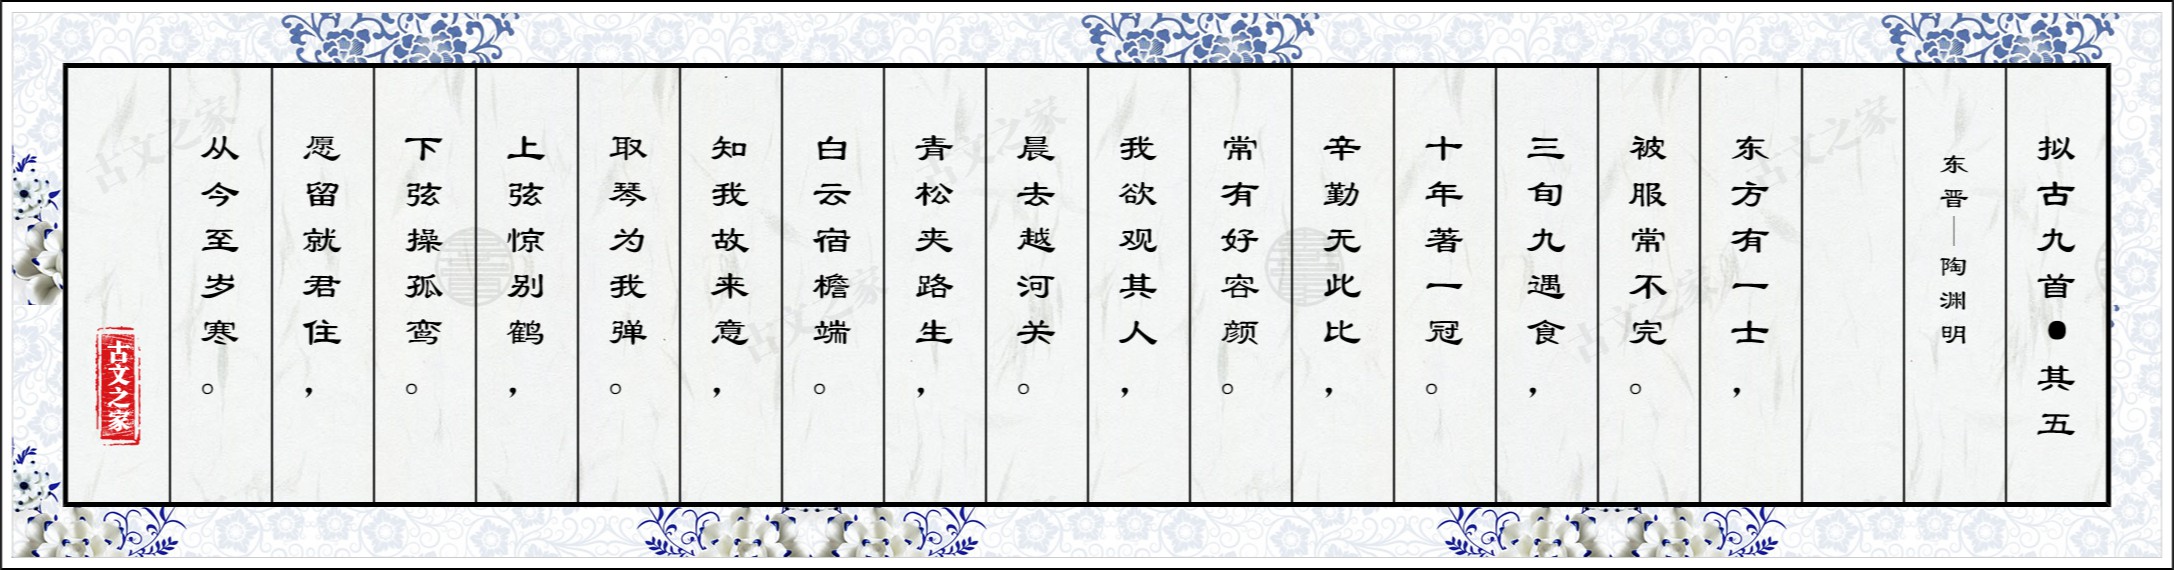 拟古九首●其五
东晋—陶渊明
东方有一士，
被服常不完。
三旬九遇食，
十年著一冠。
辛勤无此比，
常有好容颜。
我欲观其人，
晨去越河关。
青松夹路生，
白云宿檐端。
知我故来意，
取琴为我弹。
上弦惊别鹤，
下弦操孤鸾。
愿留就君住，
从今至岁寒。
古文之家